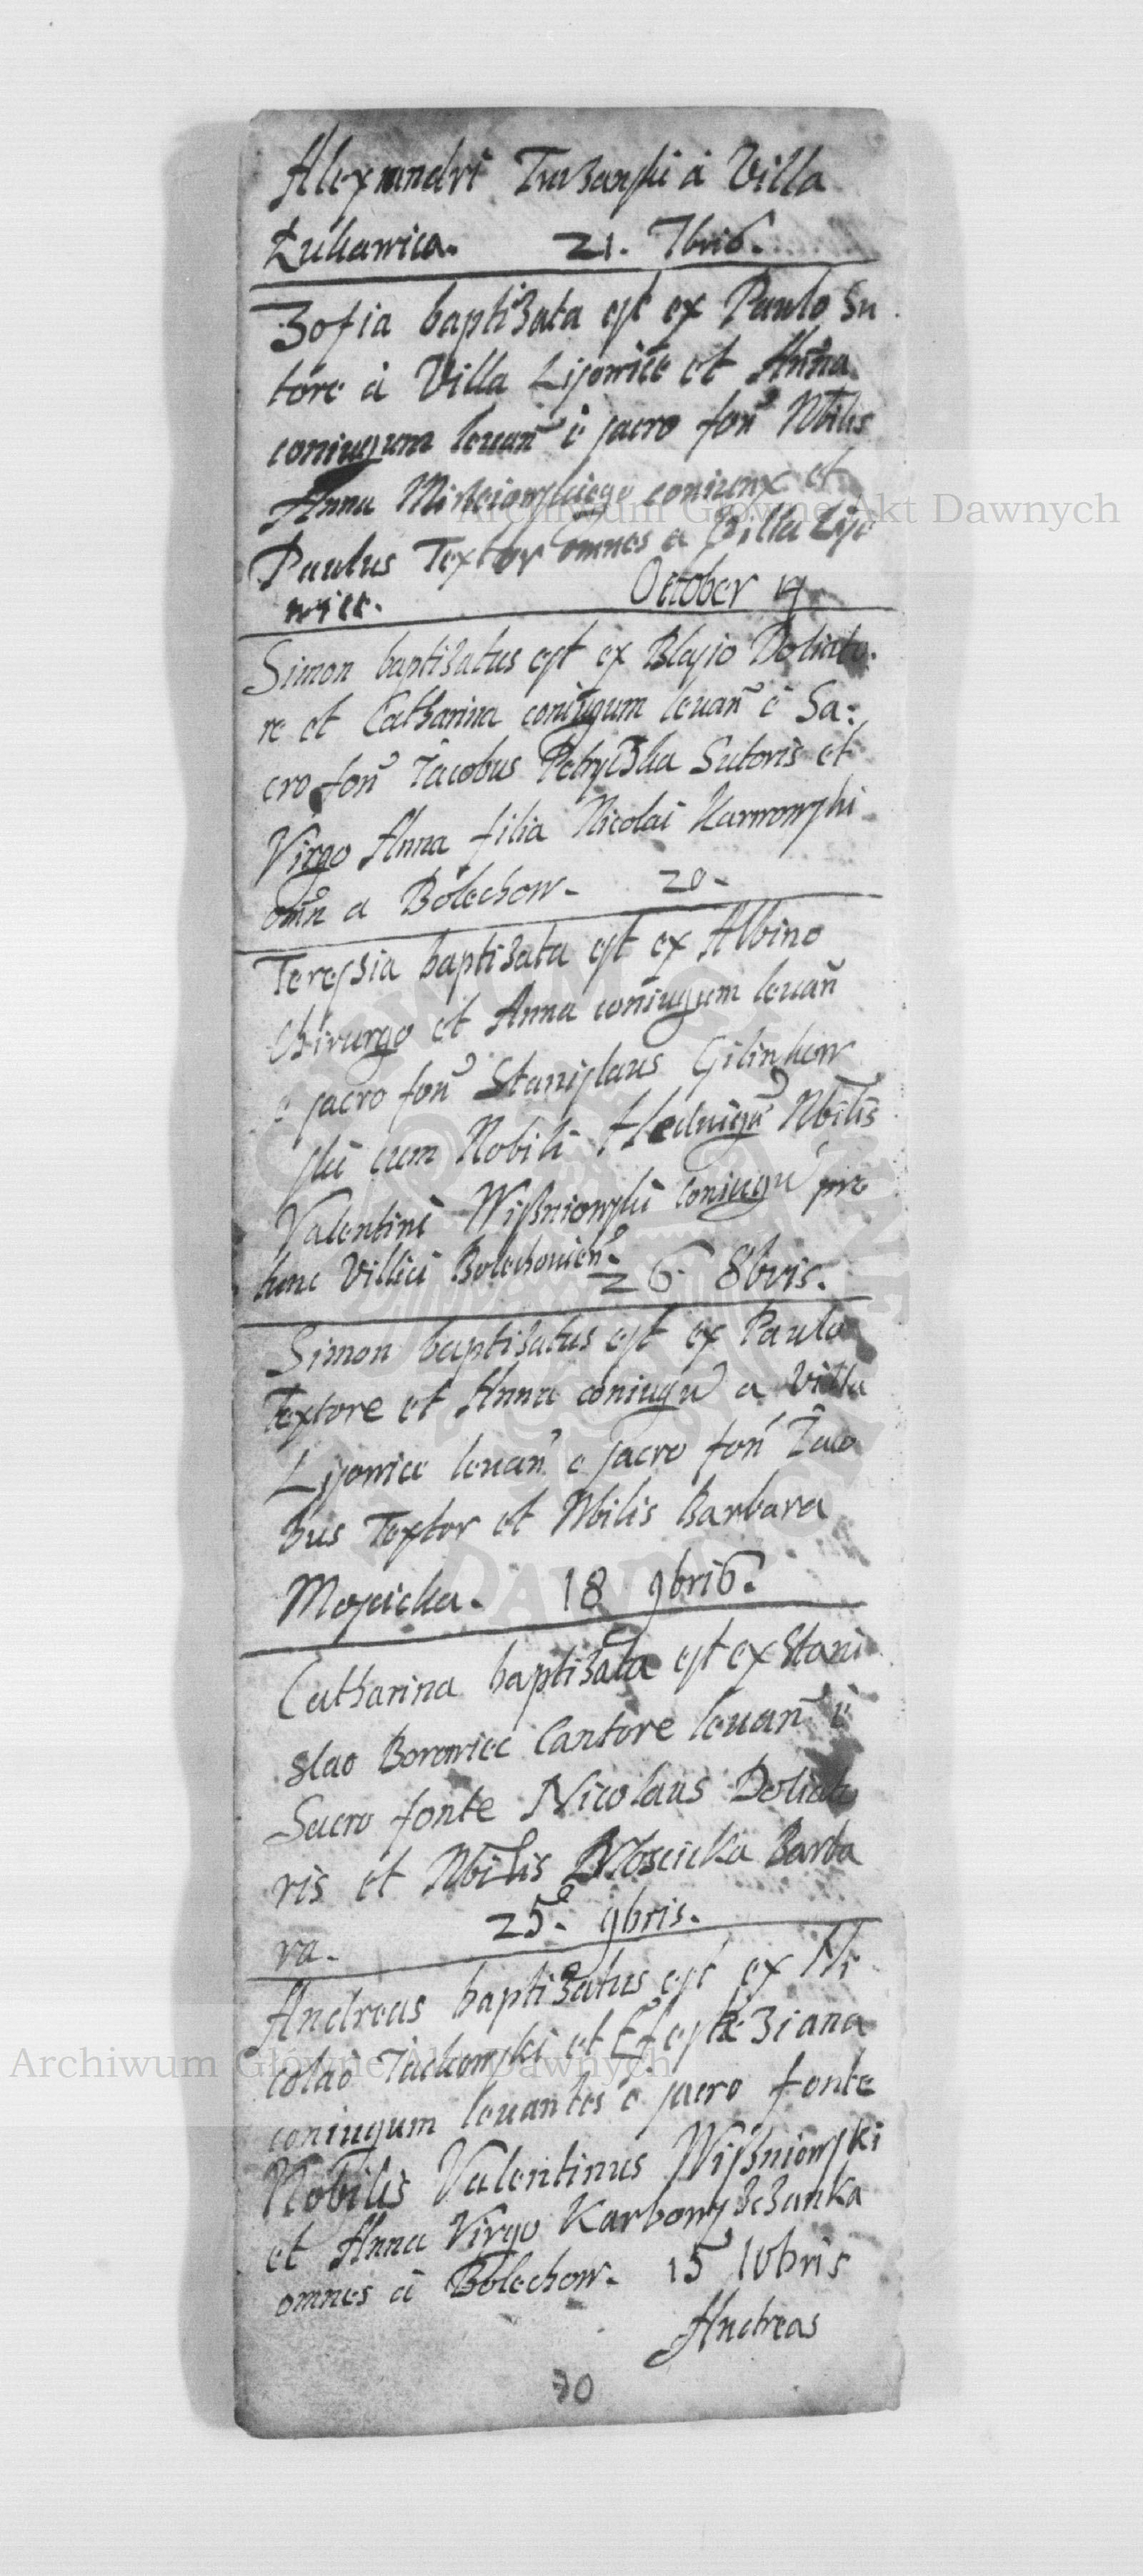 Alexandri Turzanski à Villa
Łukawica. 21. 7bris.
Zofia baptizata est ex Paulo Su
tore à Villa Lisowice et Anna
coniugum leuan̄ è sacro fon̄ Nbilis
Anna coniunx et
Paulus Textor omnes a Villa Liso
wice. October 14
Simon baptizatus est ex Blasio Doliato:
re et Catharina coniugum leuan̄ è Sa:
cro fon̄ Iacobus Petryczka Sutoris et
Virgo Anna filia Nicolai Karwowski
omn̄ a Bolechow. 20.
Teressia baptizata est ex Albino
Chirurgo et Anna coniugum leuan̄
e sacro fon̄ Stanislaus Gilinkow
ski cum Nobili Heduigi Nbilis
Valentini Wiszniowski coniugu pro
hunc Villici Bolechouien̄. 26. 8bris.
Simon baptisatus est ex Paulo
Textore et Anna coniugu a Villa
Lisowice leuan̄ e sacro fon̄ Iaco
bus Textor et Nbilis Barbara
Moscicka. 18 9bris.
Catharina baptizata est ex Stani
slao Borowiec Cantore leuan̄ è
Sacro fonte Nicolaus Doliato
ris et Nbilis Moscicka Barba
ra. 25. 9bris.
Andreas baptizatus est ex Ni
colao Iackowski et
coniugum leuantes è sacro fonte
Nobilis Valentinus Wiszniowski
et Anna Virgo
omnes à Bolechow. 15 10bris
Andreas
70
Archiwum Główne Akt Dawnych
Archiwum Główne Akt Dawnych